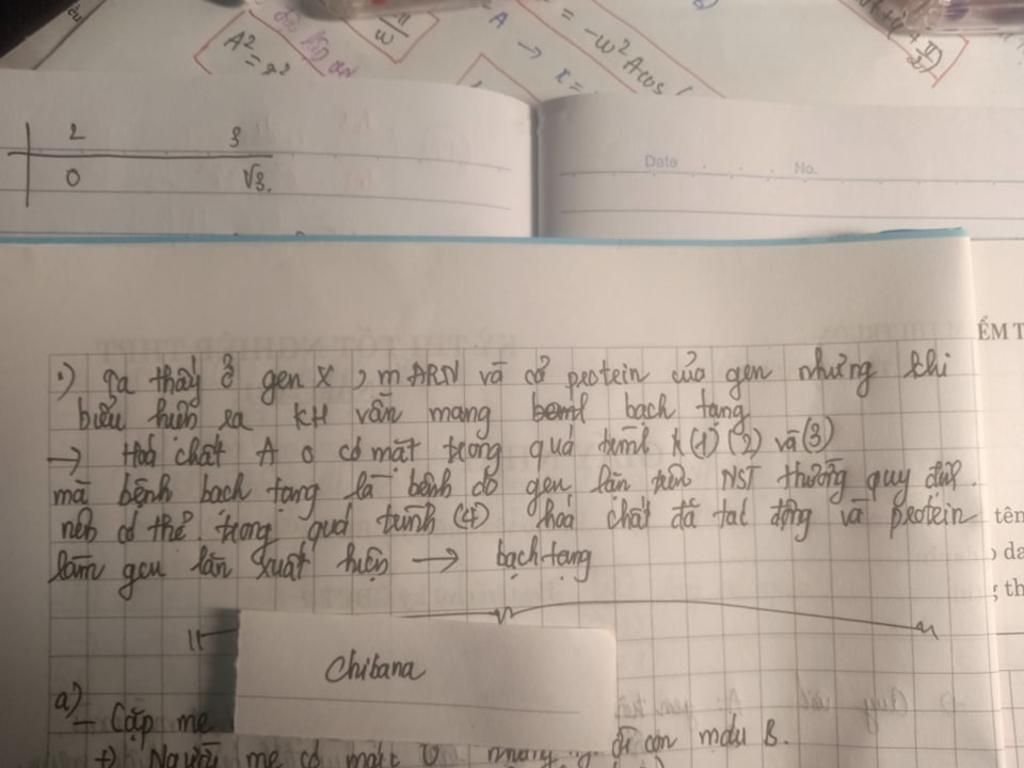 A² = x²
π/ω
A → x =
= -ω²Acos(
2 3
0 √3.
Date No.
ỂM T
•) Ta thấy ở gen X, mARN và cả protein của gen nhưng khi
biểu hiện ra KH vẫn mang bạch tạng
→ Hoá chất A o có mặt trong quá trình (1) (2) và (3)
mà bệnh bạch tạng là bệnh do gen lặn trên NST thường quy định.
nên có thể trong quá trình (4) hoá chất đã tác động và protein
làm gen lặn xuất hiện → bạch tạng
tên
da
g th
Chibana
a)
- Cặp mẹ đi con máu B.
+) Người mẹ có